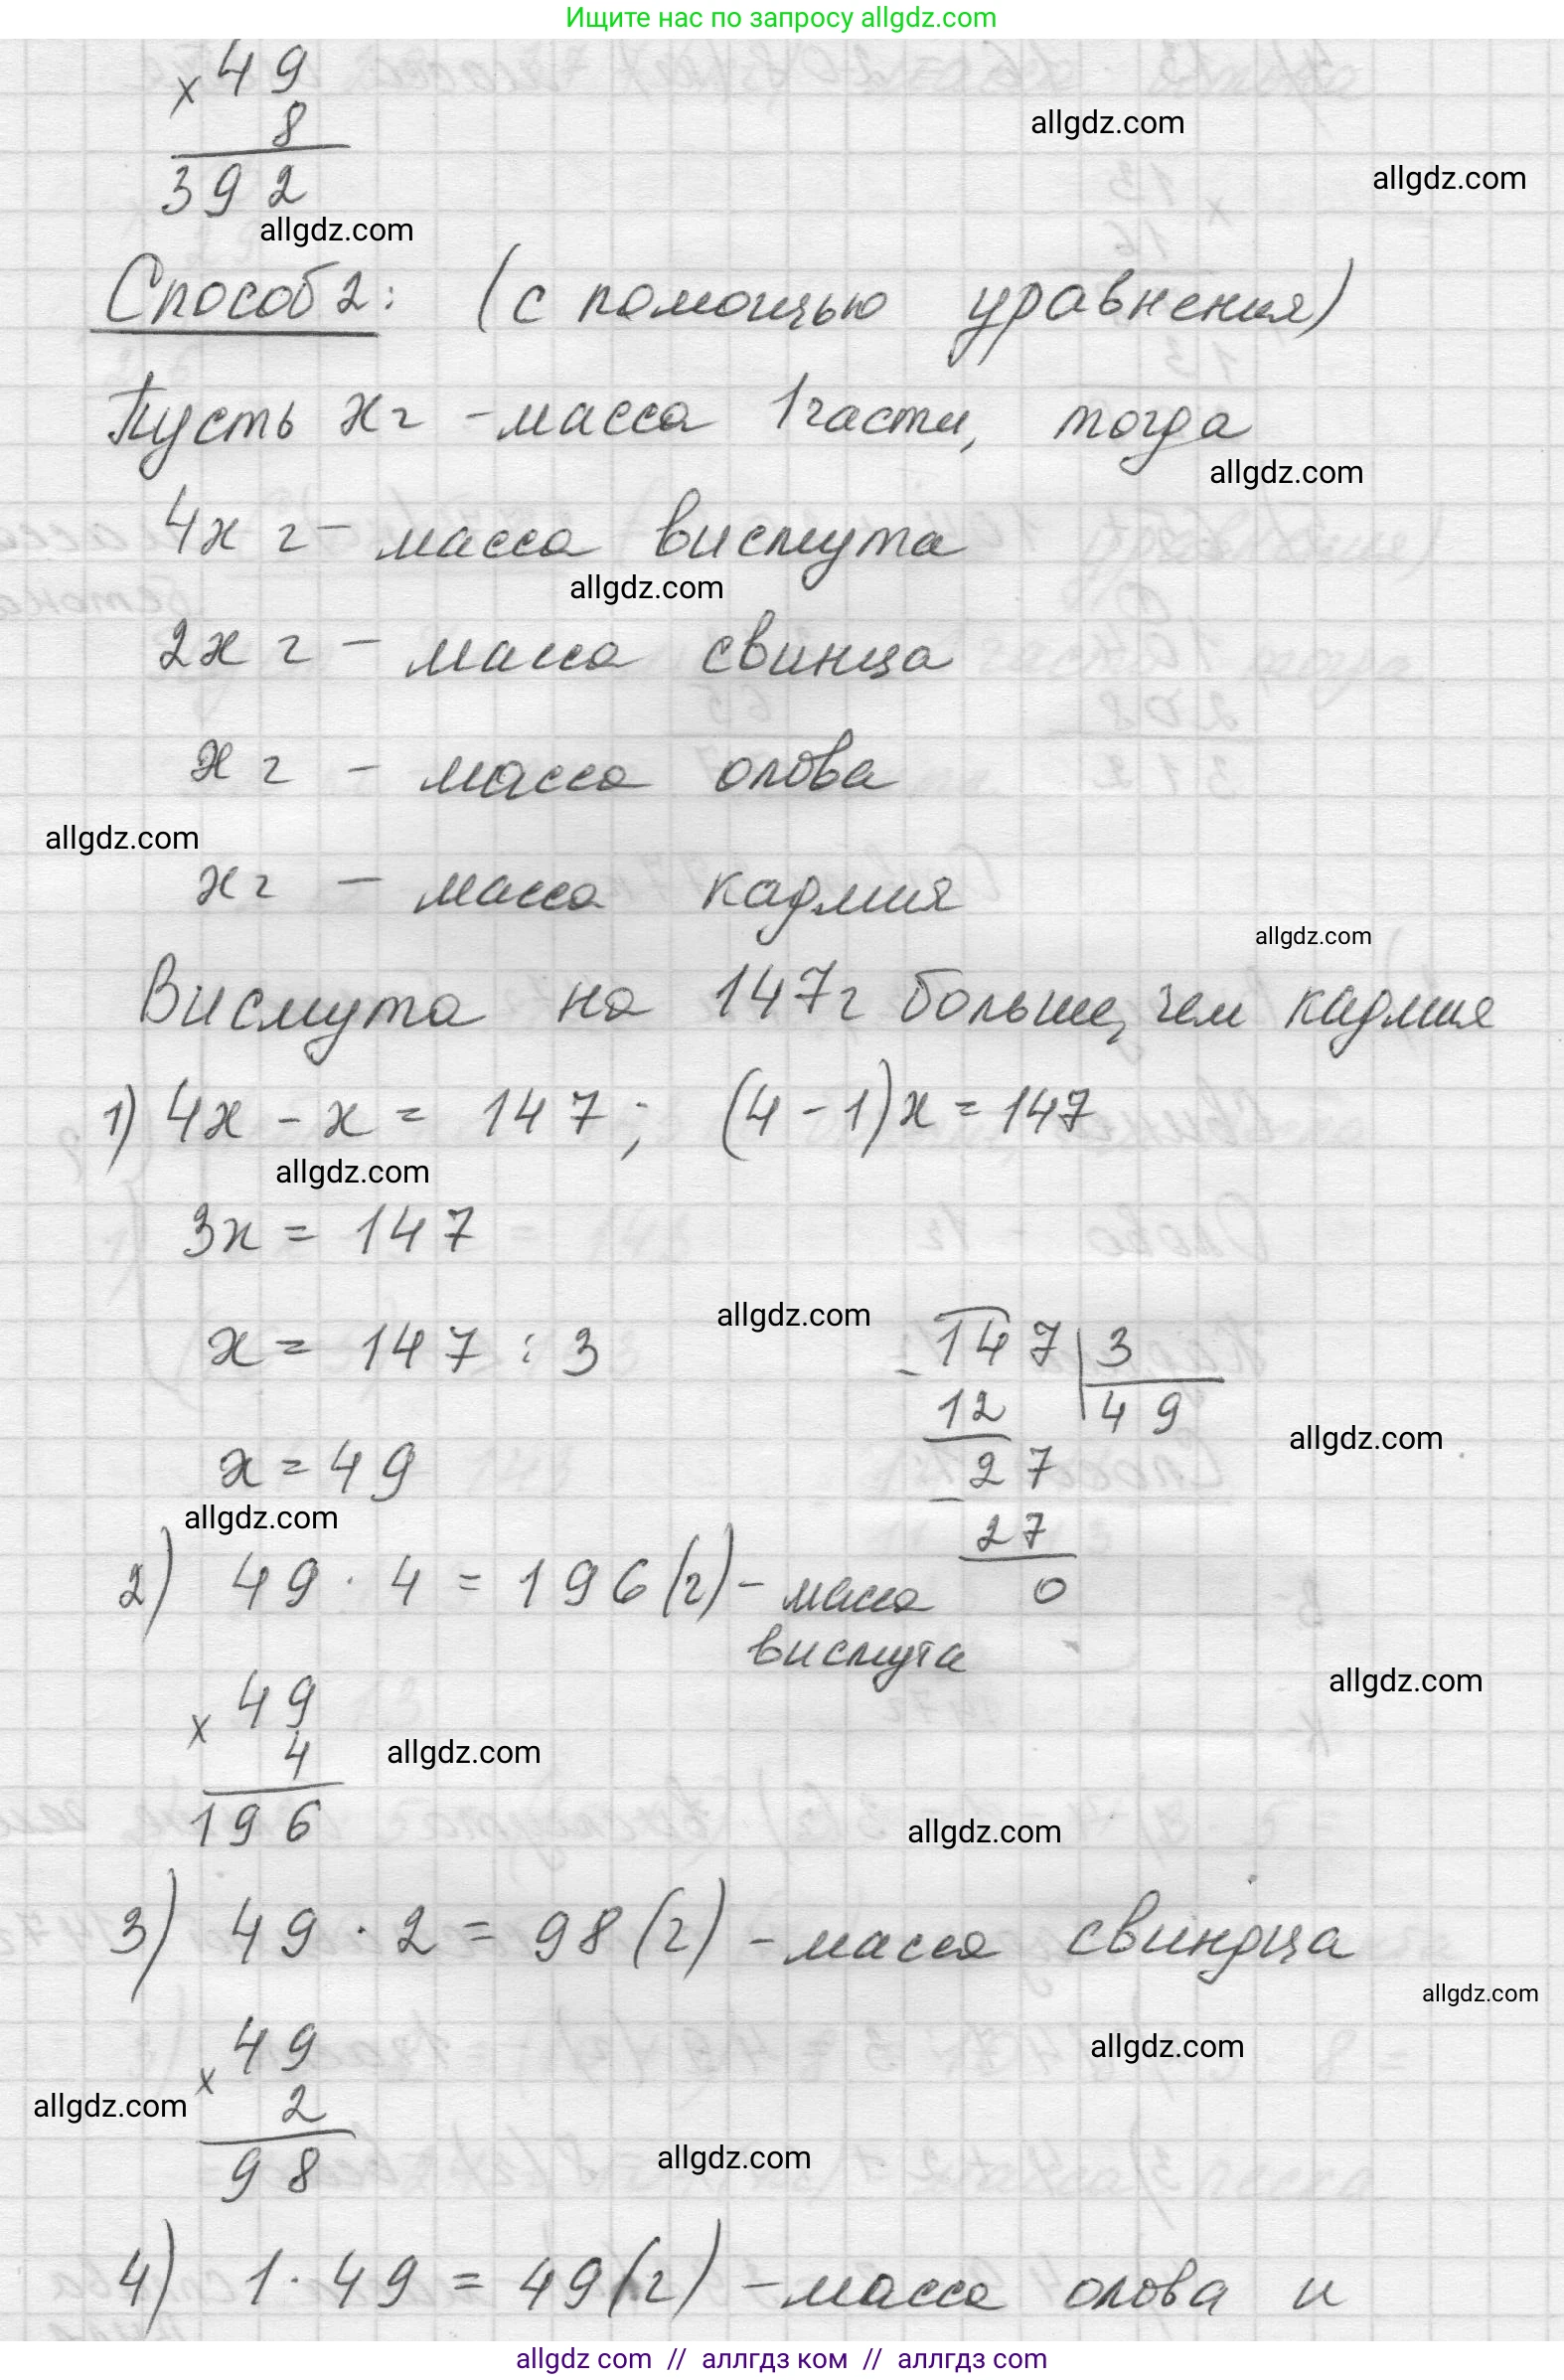 Ищите нас по запросу allgdz.com
× 49
8
392
allgdz.com
allgdz.com
allgdz.com
Способ 2: (с помощью уравнения)
Пусть x г - масса 1 части, тогда
allgdz.com
4x г - масса висмута
allgdz.com
2x г - масса свинца
x г - масса олова
allgdz.com
x г - масса кадмия
allgdz.com
Висмута на 147г больше, чем кадмия
1) 4x - x = 147; (4 - 1)x = 147
allgdz.com
3x = 147
allgdz.com
x = 147 : 3
- 147 | 3
12 | 49
allgdz.com
x = 49
- 27
allgdz.com
27
0
2) 49 · 4 = 196 (г) - масса
висмута
allgdz.com
× 49
4
allgdz.com
196
allgdz.com
3) 49 · 2 = 98 (г) - масса свинца
allgdz.com
× 49
allgdz.com
2
allgdz.com
98
allgdz.com
4) 1 · 49 = 49 (г) - масса олова и
allgdz com // аллгдз ком // аллгдз com